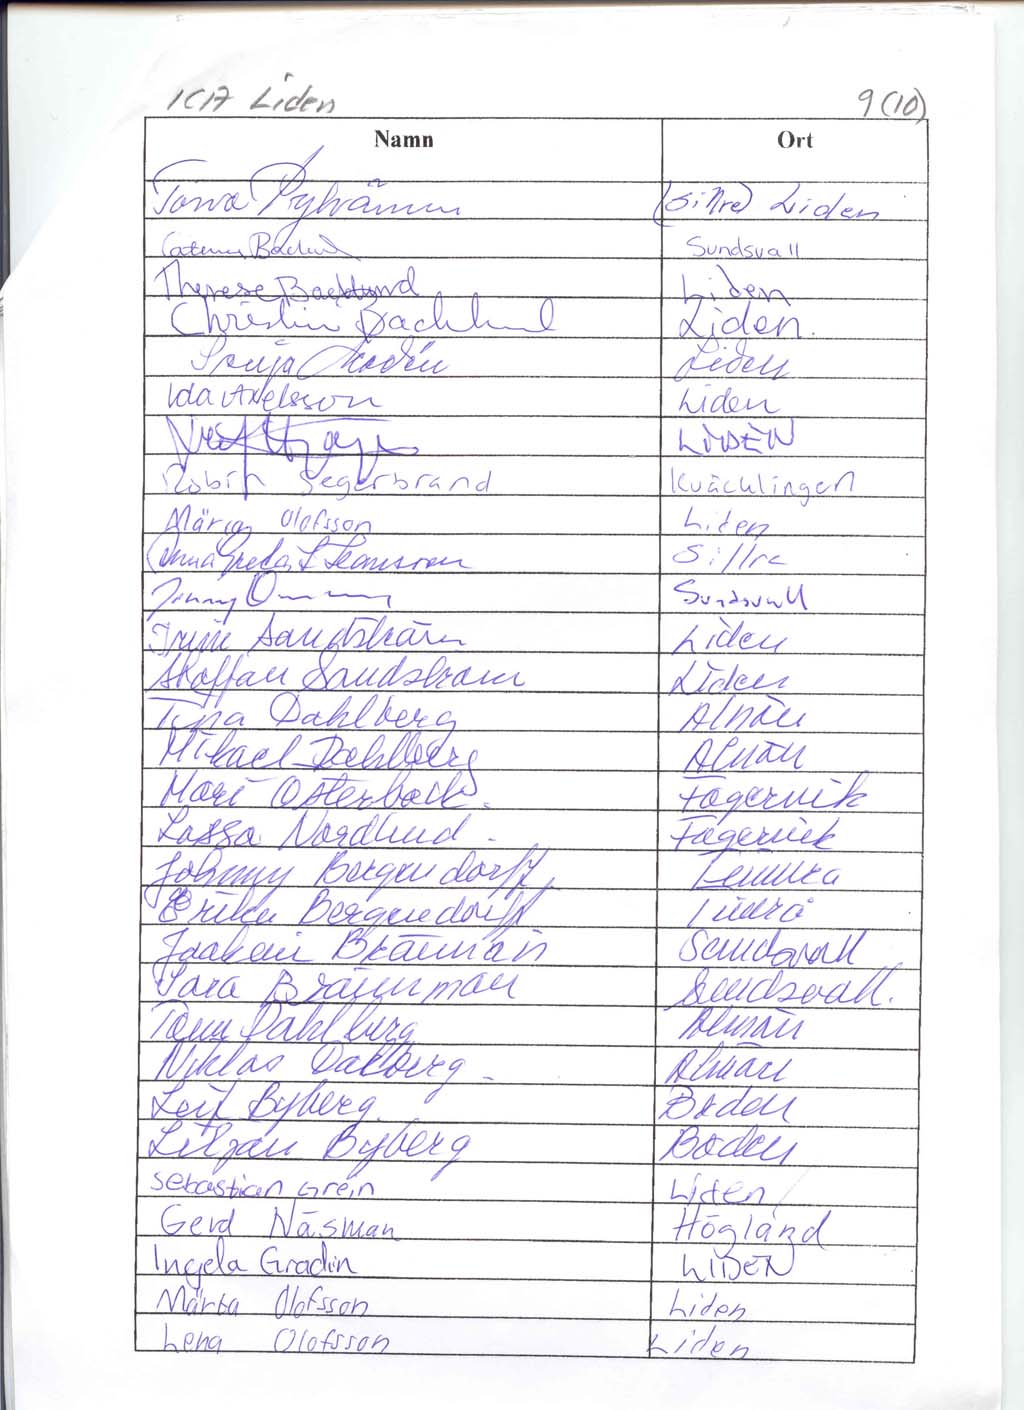 ICA Liden 9(10)
Namn Ort
(Sillre) Liden
Sundsvall
Therese Backlund Liden
Christin Backlund Liden.
Liden
Ida Axelsson Liden
LIDEN
Robin Segerbrand Kväcklingen
Märta Olofsson Liden
Anna Greta Sillre
Jenny Sundsvall
Sandström Liden
Staffan Sandström Liden
Tina Dahlberg Alnön
Mikael Dahlberg Alnön
Mari Österback. Fagervik
Lasse Nordlund - Fagervik
Johnny Bergendorff, Timmra
Erika Bergendorff Timrå
Joakim Brännman Sundsvall
Sara Brännman Sundsvall.
Tony Dahlberg Alnön
Niklas Dalberg - Alnön
Leif Byberg. Boden
Byberg Boden
Sebastian Grein Liden
Gerd Näsman Högland
Ingela Gradin LIDEN
Märta Olofsson Liden
Lena Olofsson Liden